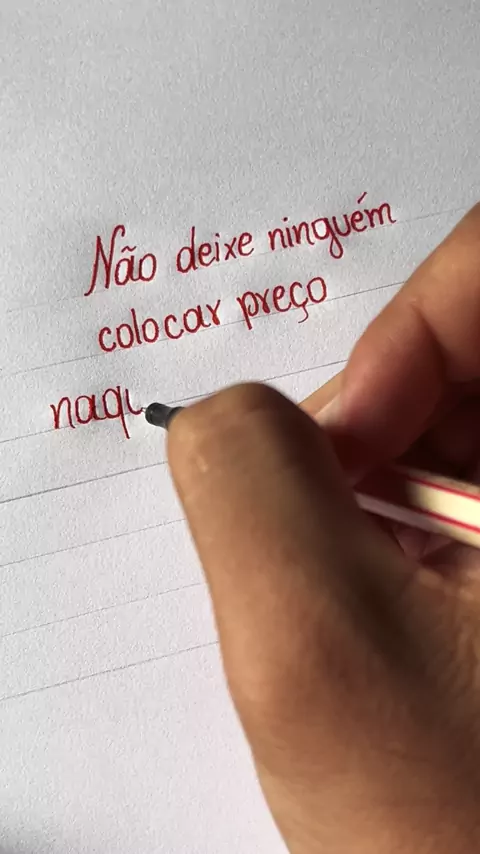 Não deixe ninguém
colocar preço
naqu